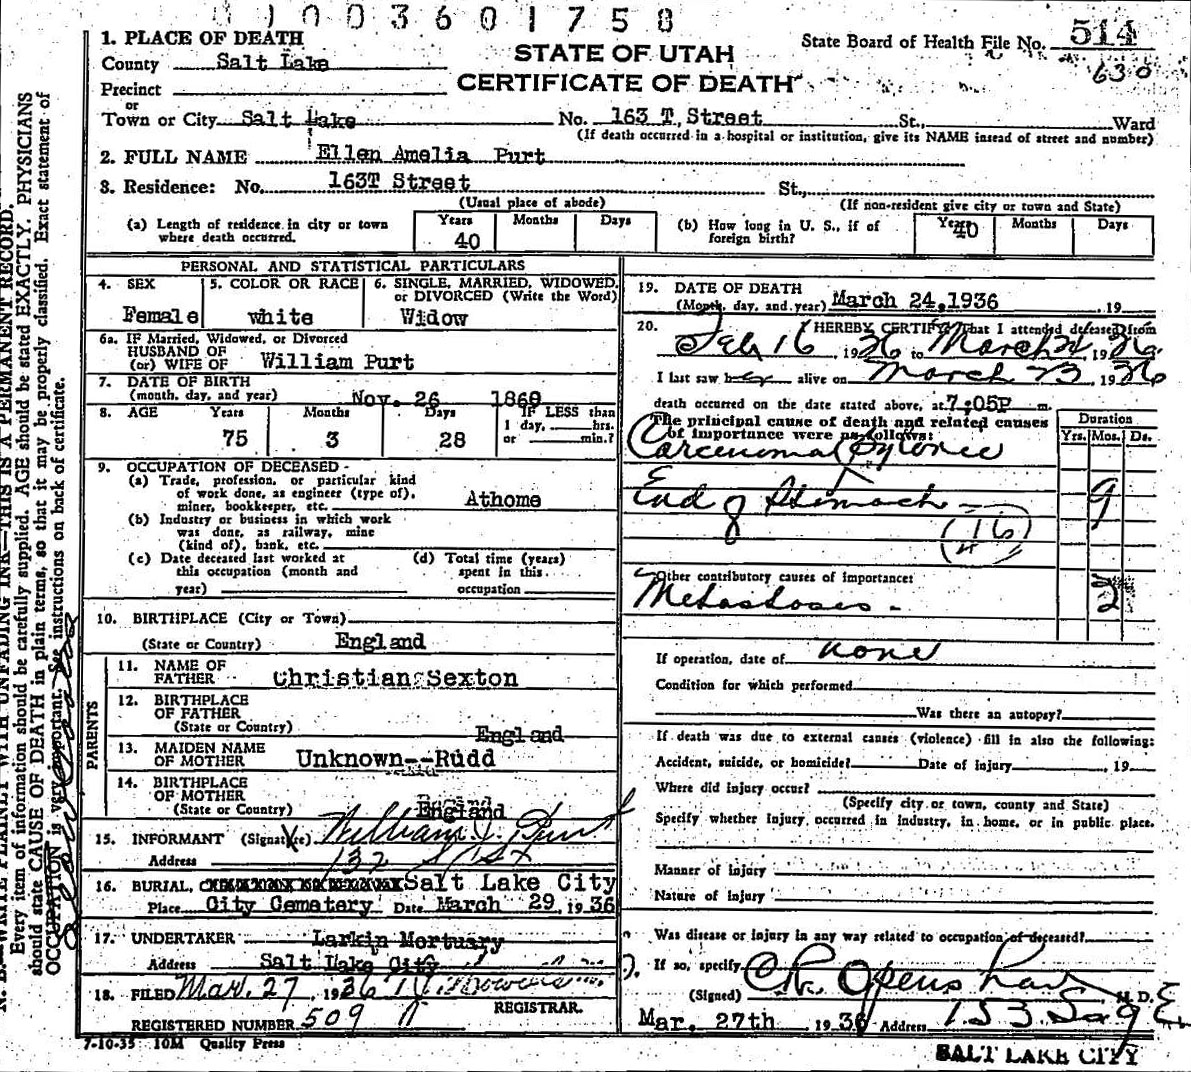 01003601758
1. PLACE OF DEATH
STATE OF UTAH
CERTIFICATE OF DEATH
State Board of Health File No. 514
630
County Salt Lake
Precinct
or
Town or City Salt Lake No. 163 T Street St., Ward
(If death occurred in a hospital or institution, give its NAME insead of street and number)
2. FULL NAME Ellen Amelia Purt
3. Residence: No. 163T Street St.,
(Usual place of abode) (If non-resident give city or town and State)
(a) Length of residence in city or town where death occurred. Years 40 Months Days
(b) How long in U. S., if of foreign birth? Years 40 Months Days
PERSONAL AND STATISTICAL PARTICULARS
4. SEX Female
5. COLOR OR RACE white
6. SINGLE, MARRIED, WIDOWED, or DIVORCED (Write the Word) Widow
6a. IF Married, Widowed, or Divorced
HUSBAND OF
(or) WIFE OF William Purt
7. DATE OF BIRTH
(month, day, and year) Nov. 26 1860
8. AGE Years 75 Months 3 Days 28 IF LESS than 1 day, hrs. or min.?
9. OCCUPATION OF DECEASED-
(a) Trade, profession, or particular kind
of work done, as engineer (type of),
miner, bookkeeper, etc. Athome
(b) Industry or business in which work
was done, as railway, mine
(kind of), bank, etc.
(c) Date deceased last worked at
this occupation (month and
year)
(d) Total time (years)
spent in this
occupation
10. BIRTHPLACE (City or Town)
(State or Country) England
PARENTS
11. NAME OF FATHER Christian Sexton
12. BIRTHPLACE OF FATHER
(State or Country) England
13. MAIDEN NAME OF MOTHER Unknown--Rudd
14. BIRTHPLACE OF MOTHER
(State or Country) England
15. INFORMANT (Signature) William J. Purt
Address 132
16. BURIAL, Salt Lake City
Place City Cemetery Date March 29, 1936
17. UNDERTAKER Larkin Mortuary
Address Salt Lake City
18. FILED Mar. 27, 1936
REGISTRAR.
REGISTERED NUMBER 509
7-10-35 10M Quality Press
19. DATE OF DEATH
(Month, day, and year) March 24, 1936 , 19
20. I HEREBY CERTIFY That I attended deceased from
Feb 16, 1936 to March 24, 1936
I last saw her alive on March 23, 1936
death occurred on the date stated above, at 7:05P m.
The principal cause of death and related causes
of importance were as follows:
Duration
Yrs. Mos. Ds.
Carcenoma Pyloric
End of Stomach 9
(46)
Other contributory causes of importance:
Metastases - 2
If operation, date of none
Condition for which performed
Was there an autopsy?
If death was due to external causes (violence) fill in also the following:
Accident, suicide, or homicide? Date of injury , 19
Where did injury occur?
(Specify city or town, county and State)
Specify whether injury occurred in industry, in home, or in public place.
Manner of injury
Nature of injury
Was disease or injury in any way related to occupation of deceased?
If so, specify
(Signed) C. R. Openshaw M. D.
Mar. 27th 1936 Address 153 So 9 E
SALT LAKE CITY
N. B.—WRITE PLAINLY WITH UNFADING INK—THIS IS A PERMANENT RECORD.
Every item of information should be carefully supplied. AGE should be stated EXACTLY. PHYSICIANS
should state CAUSE OF DEATH in plain terms, so that it may be properly classified. Exact statement of
OCCUPATION is very important. See instructions on back of certificate.